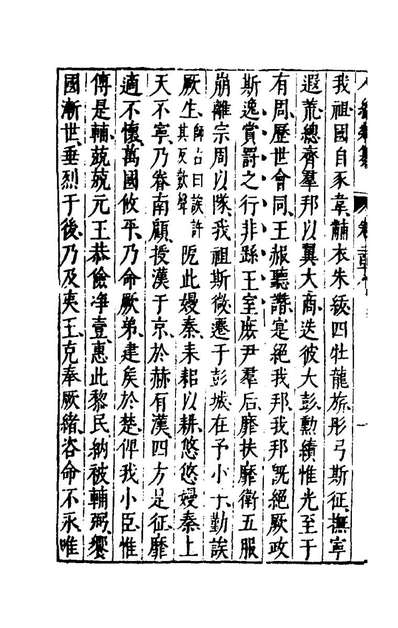 我祖國自豕韋、黼衣朱紱四牡龍旂、彤弓斯征、撫寧
遐荒、總齊羣邦、以翼大商、迭彼大彭、勲績惟光、至于
有周、歷世會同、王赧聽譖、寔絕我邦、我邦既絕、厥政
斯逸、賞罰之行、非繇王室、庶尹羣后、靡扶靡衛、五服
崩離、宗周以隊、我祖斯微、遷于彭城、在予小子、勤誒
厥生、師古曰誒許其反歎聲阨此嫚秦、耒耜以耕、悠悠嫚秦、上
天不寧、乃眷南顧、授漢于京、於赫有漢、四方是征、靡
適不懷、萬國攸平、乃命厥弟、建矦於楚、俾我小臣、惟
傅是輔、兢兢元王、恭儉凈壹、惠此黎民、納被輔弼、饗
國漸世、垂烈于後、乃及夷王、克奉厥緒、咨命不永、唯